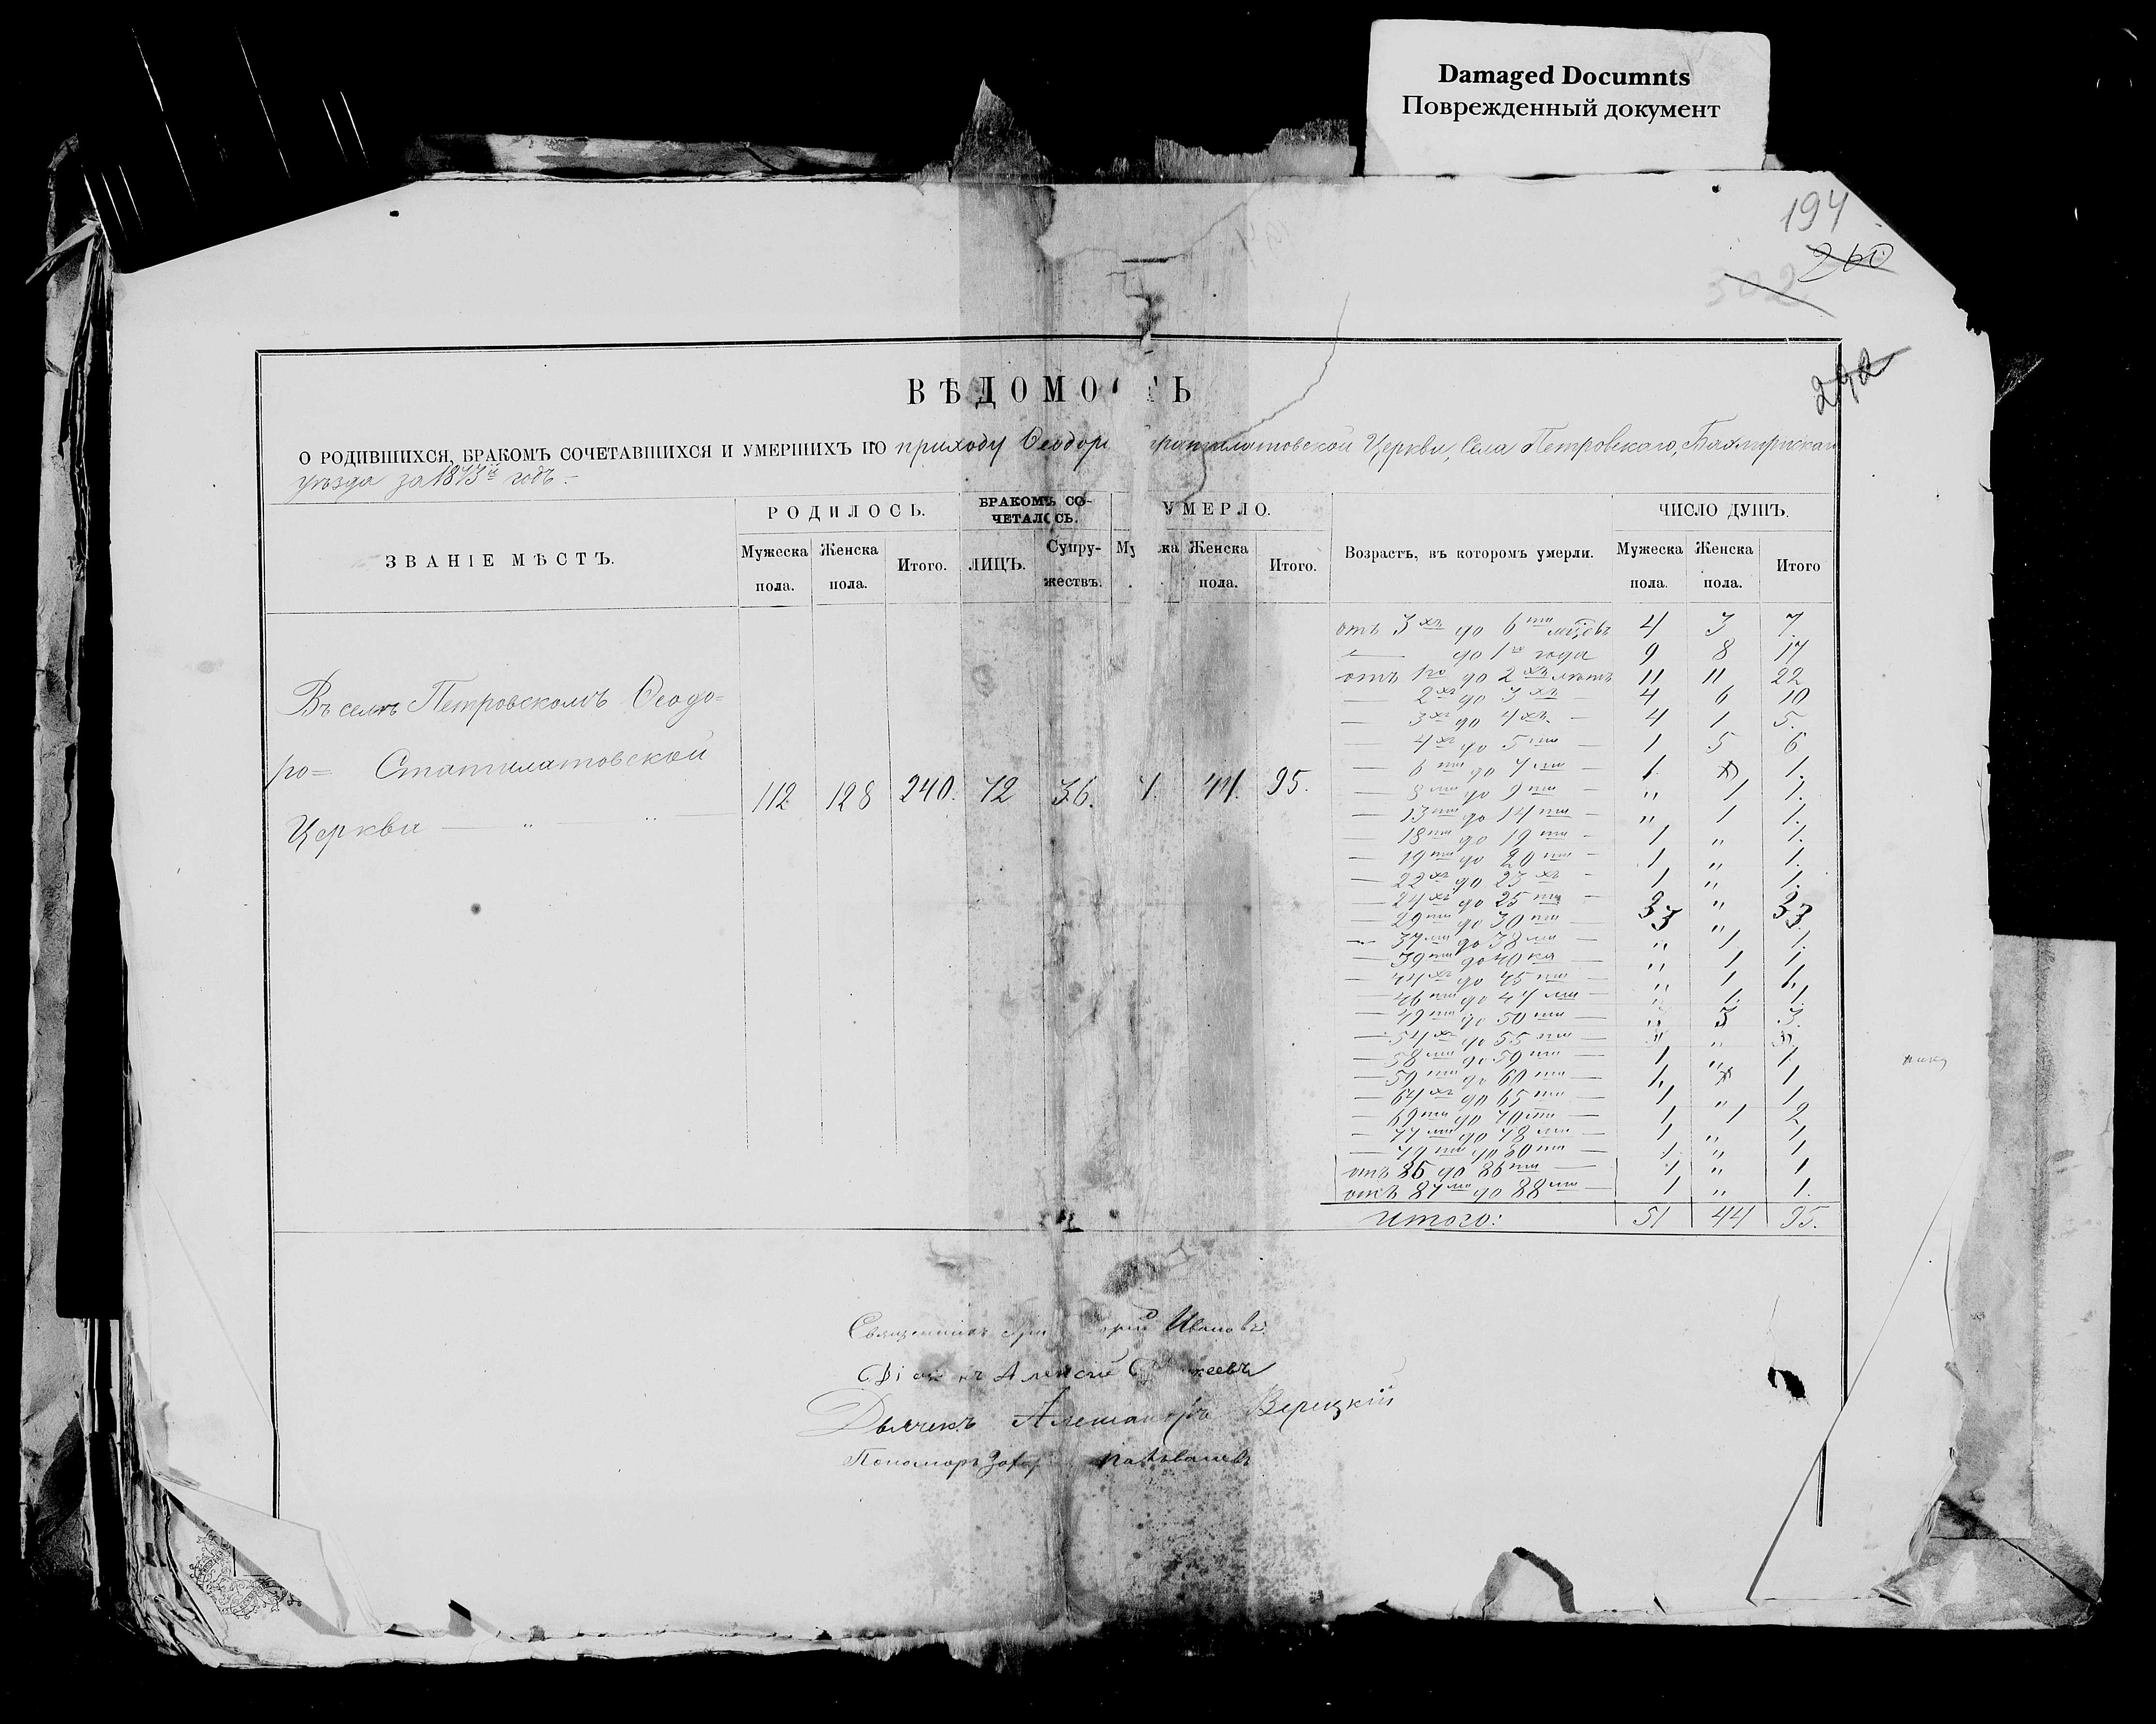 Damaged Documnts
Поврежденный документ
194
260
302
292
ВѢДОМО Ь
О РОДИВШИХСЯ, БРАКОМЪ СОЧЕТАВШИХСЯ И УМЕРШИХЪ ПО приходу Ѳеодоро Стратилатовской Церкви, Села Петровскаго, Бахмутскаго
уѣзда за 1873й годъ.
ЗВАНІЕ МѢСТЪ. РОДИЛОСЬ. БРАКОМЪ СО-ЧЕТАЛОСЬ. УМЕРЛО. Возрастъ, въ которомъ умерли. ЧИСЛО ДУШЪ.
Мужеска пола. Женска пола. Итого. ЛИЦЪ. Супру-жествъ. Му ка Женска пола. Итого. Мужеска пола. Женска пола. Итого
Въ селѣ Петровскомъ Ѳеодо=
ро= Статилатовской
Церкви — " — " —
112 128 240. 72 36. 44. 95.
отъ 3хъ до 6ти мцевъ 4 3 7
— до 1го года 9 8 17
отъ 1го до 2хъ лѣтъ 11 11 22
— 2хъ до 3хъ — 4 6 10
— 3хъ до 4хъ — 4 1 5.
— 4хъ до 5ти — 1 5 6
— 6ти до 7ми — 1 1.
— 8ми до 9ти — " 1 1.
— 13ти до 14ти — " 1 1.
— 18ти до 19ти — 1 " 1.
— 19ти до 20ти — 1 " 1.
— 22хъ до 23хъ — 1 " 1.
— 24хъ до 25ти — 3 " 3
— 29ти до 30ти — 3 " 3
— 37ми до 38ми — " 1 1.
— 39ти до 40ка — " 1 1.
— 44хъ до 45ти — " 1 1.
— 46ти до 47ми — " 1. 1.
— 49ти до 50ти — " 3 3.
— 54хъ до 55ти — "
— 58ми до 59ти — 1 " 1
— 59ти до 60ти — 1 1
— 64хъ до 65ти — 1 " 1
— 69ти до 70ти — 1 1 2
— 77ми до 78ми — 1 " 1
— 79ти до 80ти — 1 " 1
отъ 85 до 86ти — 1 " 1
отъ 87ми до 88ми — 1 " 1.
Итого: 51 44 95.
Священникъ Ивановъ
Алексѣй
Дьячекъ Александръ Верецкій
Пономарь